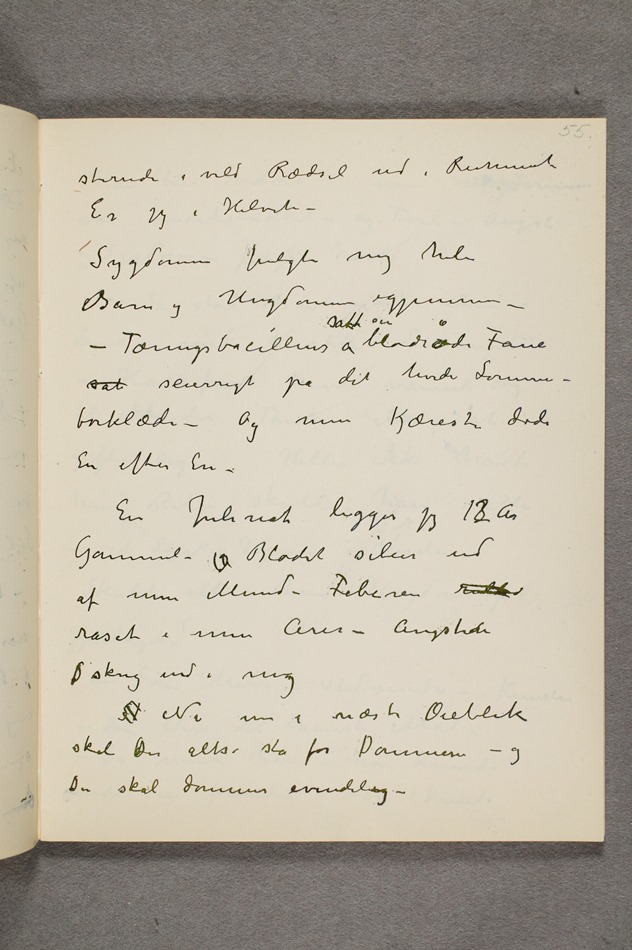 55.
stirrende i vild Rædsel ud i Rummet
Er jeg i Helvete –
Sygdommen fulgte mig hele
Barn og Ungdommen igjennem –
– Tæringsbacillens satte sin blodrøde Fane
sat seierrigt på det hvide Lomme-
tørklæde – Og mine Kjæreste døde
En efter En –
En Julenat ligger jeg 13 År
Gammel – Blodet siler ud
af min Mund – Feberen
raset i mine Årer – Angsten
skreg ind i mig
Nu nu i næste Øieblik
skal Du altså stå for Dommeren – og
Du skal dømmes evindelig –